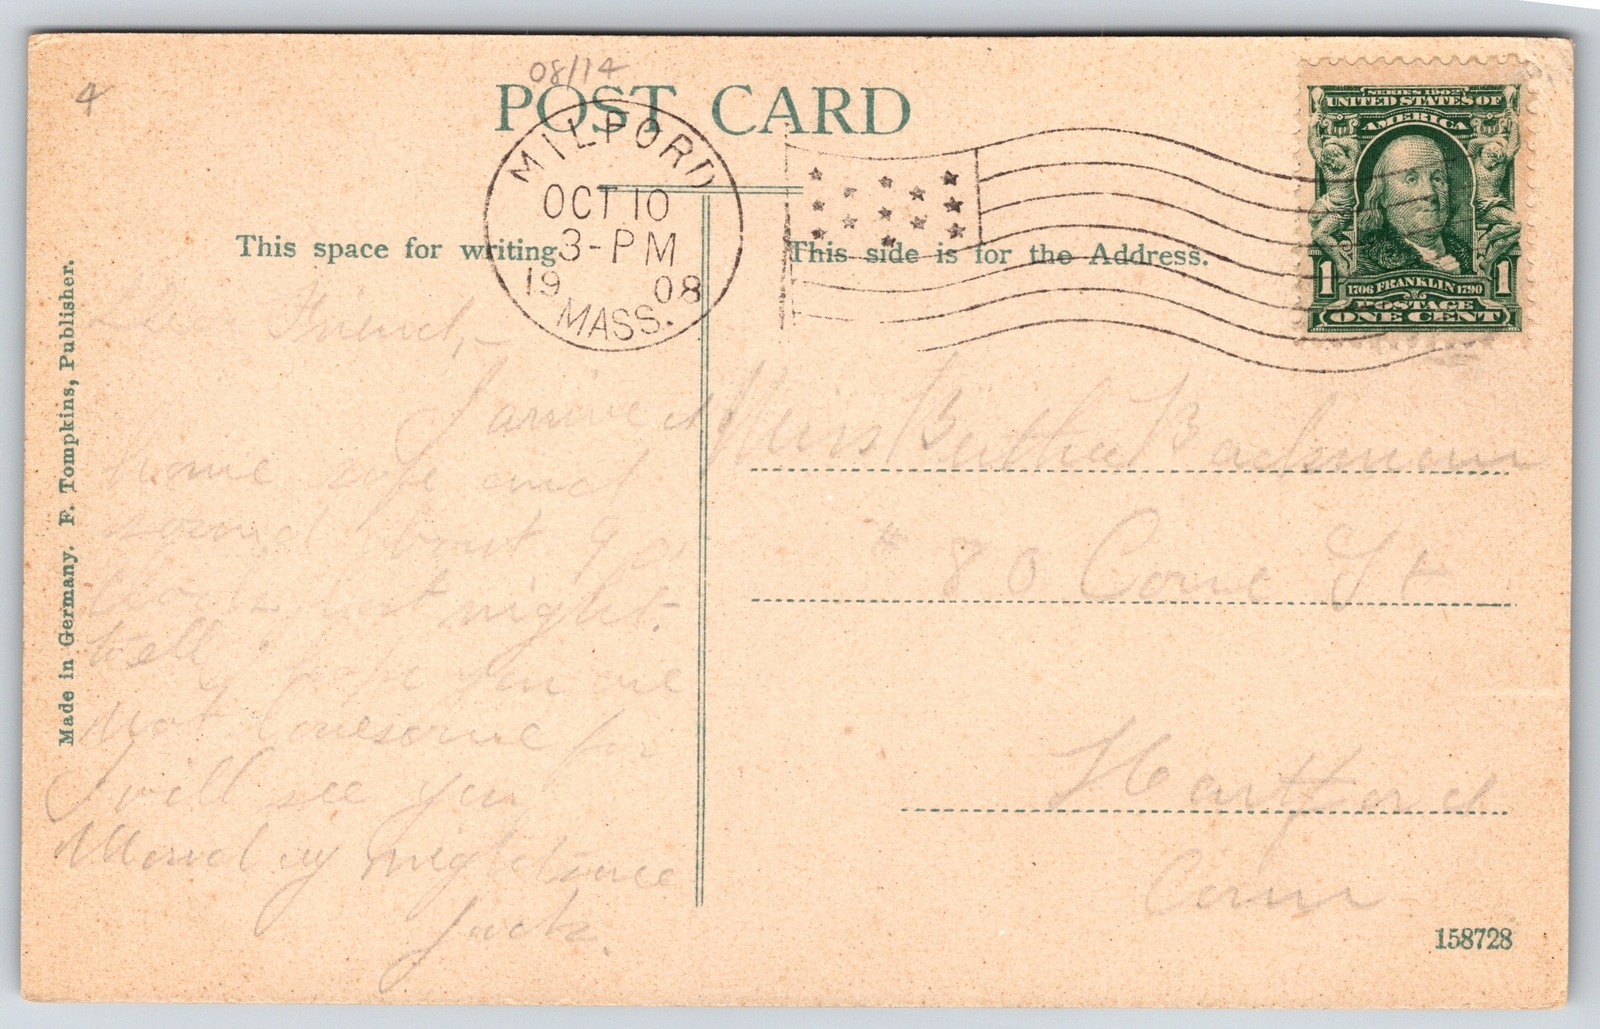 08/14
4
POST CARD
MILFORD
OCT 10
3-PM
19 08
MASS.
SERIES 1902
UNITED STATES OF
AMERICA
1 1
1706 FRANKLIN 1790
POSTAGE
ONE CENT
This space for writing
This side is for the Address.
Made in Germany. F. Tompkins, Publisher.
Friend,-
I arrived
home safe and
sound about 9 o
clock last night.
Well I hope you are
not lonesome for
I will see you
Monday night since
Jack.
Miss Bertha Backman
# 80 Cone St
Hartford
Conn
158728